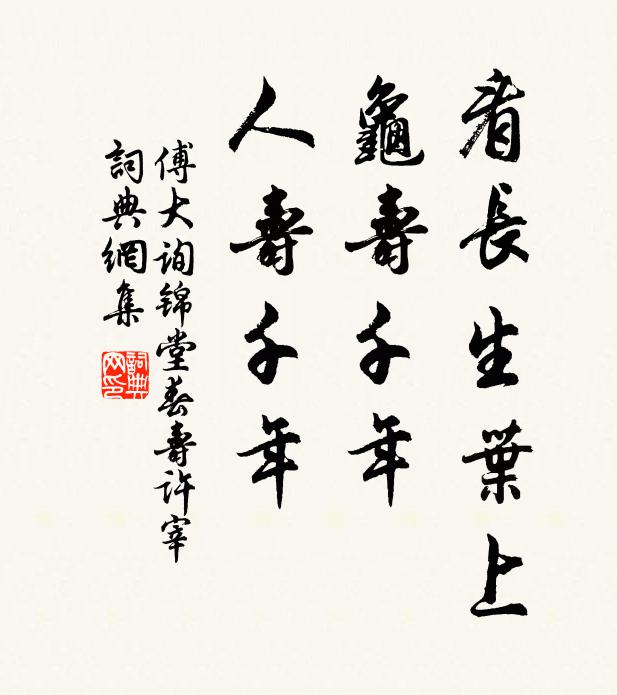 看長生葉上
龜壽千年
人壽千年
傅大询锦堂春壽许宰
詞典網集
詞典网印